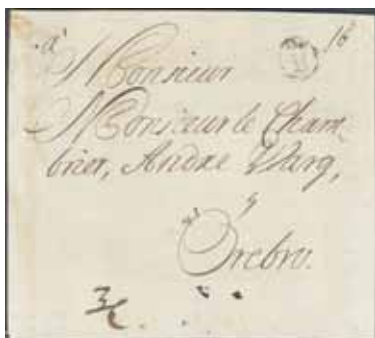 à 16
Monsieur
Monsieur le Cham-
brier, Andre
à
Örebro.